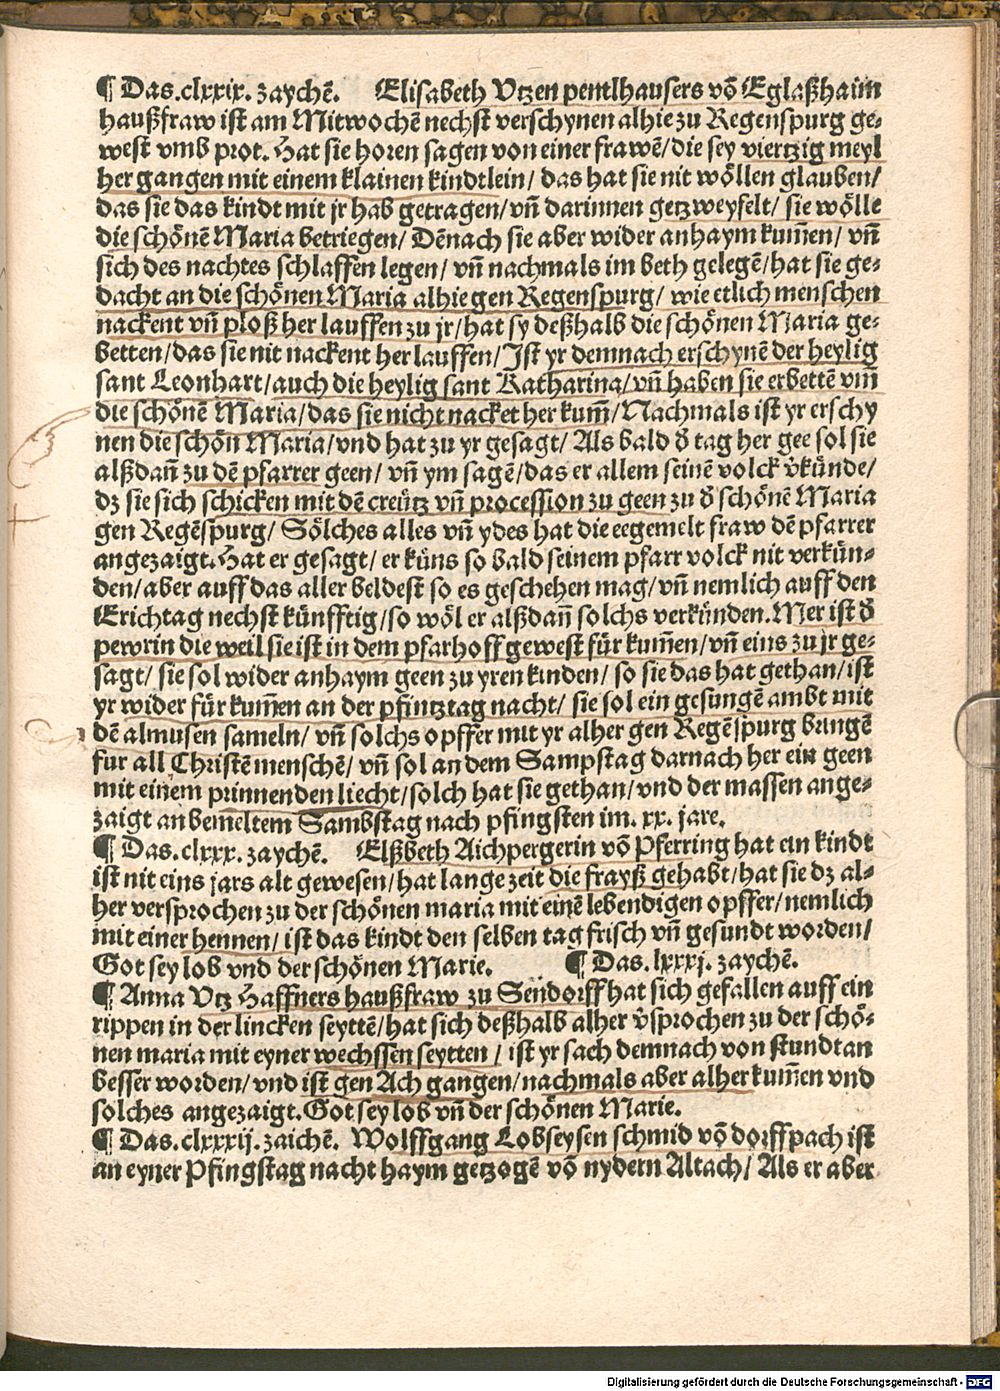 ¶ Das .clxxix. zaychē. Elisabeth Utzen pentlhausers vō Eglaßhaim
haußfraw ist am Mitwochē nechst verschynen alhie zu Regenspurg ge⸗
west vmb prot. Hat sie horen sagen von einer frawē / die sey viertzig meyl
her gangen mit einem klainen kindtlein / das hat sie nit wöllen glauben /
das sie das kindt mit jr hab getragen / vñ darinnen getzweyfelt / sie wölle
die schönē Maria betriegen / Dēnach sie aber wider anhaym kum̄en / vñ
sich des nachtes schlaffen legen / vñ nachmals im beth gelegē / hat sie ge⸗
dacht an die schönen Maria alhie gen Regenspurg / wie etlich menschen
nackent vñ ploß her lauffen zu jr / hat sy deßhalb die schönen Maria ge⸗
betten / das sie nit nackent her lauffen / Ist yr demnach erschynē der heylig
sant Leonhart / auch die heylig sant Katharina / vñ haben sie erbettē vm̄
die schönē Maria / das sie nicht nacket her kum̄ / Nachmals ist yr erschy
nen die schön Maria / vnd hat zu yr gesagt / Als bald d̓ tag her gee sol sie
alßdañ zu dē pfarrer geen / vñ ym sagē / das er allem seinē volck v̓künde /
dz sie sich schicken mit dē creütz vñ procession zu geen zu d̓ schönē Maria
gen Regēspurg / Sölches alles vñ ydes hat die eegemelt fraw dē pfarrer
angezaigt. Hat er gesagt / er küns so bald seinem pfarr volck nit verkün⸗
den / aber auff das aller beldest so es geschehen mag / vñ nemlich auff den
Erichtag nechst künfftig / so wöl er alßdañ solchs verkünden. Mer ist d̓
pewrin die weil sie ist in dem pfarhoff gewest für kum̄en / vñ eins zu jr ge⸗
sagt / sie sol wider anhaym geen zu yren kinden / so sie das hat gethan / ist
yr wider für kum̄en an der pfintztag nacht / sie sol ein gesungē ambt mit
dē almusen sameln / vñ solchs opffer mit yr alher gen Regēspurg bringē
fur all Christē menschē / vñ sol an dem Sampstag darnach her ein geen
mit einem prinnenden liecht / solch hat sie gethan / vnd der massen ange⸗
zaigt an bemeltem Sambstag nach pfingsten im. xx. jare.
¶ Das .clxxx. zaychē. Elßbeth Aichpergerin vō Pferring hat ein kindt
ist nit eins jars alt gewesen / hat lange zeit die frayß gehabt / hat sie dz al⸗
her versprochen zu der schönen maria mit einē lebendigen opffer / nemlich
mit einer hennen / ist das kindt den selben tag frisch vñ gesundt worden /
Got sey lob vnd der schönen Marie. ¶ Das .lxxxj. zaychē.
¶ Anna Utz Haffners haußfraw zu Sendorff hat sich gefallen auff ein
rippen in der lincken seyttē / hat sich deßhalb alher v̓sprochen zu der schö⸗
nen maria mit eyner wechssen seytten / ist yr sach demnach von stundt an
besser worden / vnd ist gen Ach gangen / nachmals aber alher kum̄en vnd
solches angezaigt. Got sey lob vñ der schönen Marie.
¶ Das .clxxxij. zaichē. Wolffgang Lobseysen schmid vō dorffpach ist
an eyner Pfingstag nacht haym getzogē vō nydern Altach / Als er aber
Digitalisierung gefördert durch die Deutsche Forschungsgemeinschaft - DFG